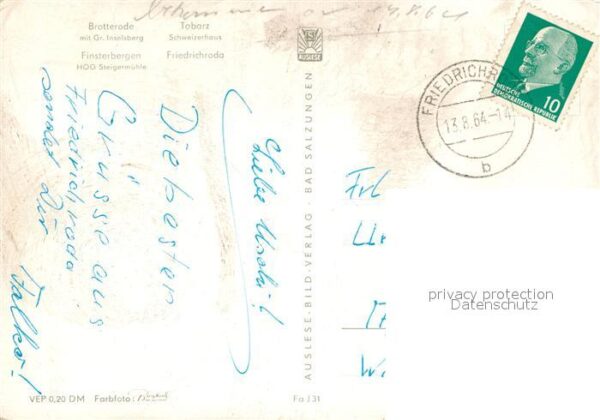 Brotterode
mit Gr. Inselsberg
Tabarz
Schweizerhaus
Finsterbergen
HOG Steigermühle
Friedrichroda
AUSLESE
Liebe Uschi!
Die besten
Grüsse aus
Friedrichroda
sendet Dir
Falko!
AUSLESE-BILD-VERLAG · BAD SALZUNGEN
FRIEDRICHR
13.8.64-14
b
DEUTSCHE
DEMOKRATISCHE REPUBLIK
10
Frl
privacy protection
Datenschutz
VEP 0,20 DM
Farbfoto:
Fa J 31